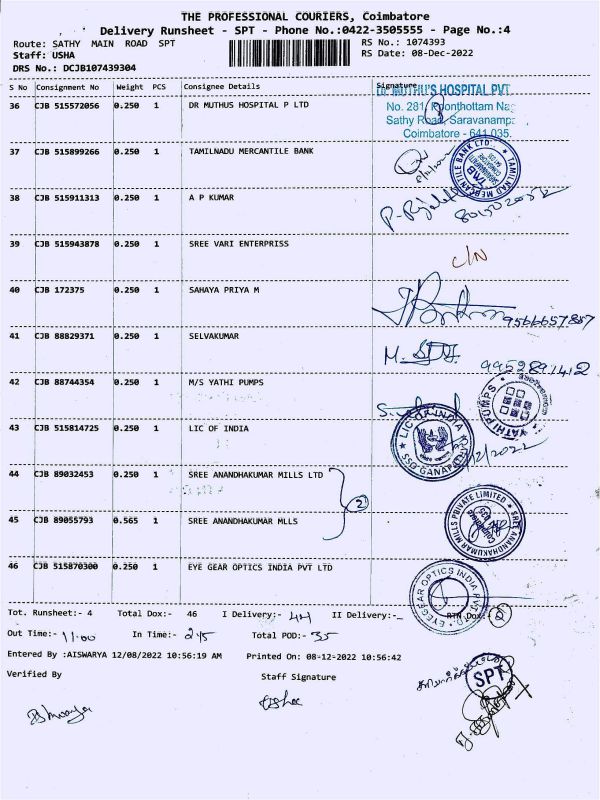 THE PROFESSIONAL COURIERS, Coimbatore
Delivery Runsheet - SPT - Phone No.:0422-3505555 - Page No.:4
Route: SATHY MAIN ROAD SPT RS No.: 1074393
Staff: USHA RS Date: 08-Dec-2022
DRS No.: DCJB107439304
S No Consignment No Weight PCS Consignee Details Signature
36 CJB 515572056 0.250 1 DR MUTHUS HOSPITAL P LTD
MUTHU'S HOSPITAL PVT
No. 281, Poonthottam Na
Sathy Road, Saravanamp
Coimbatore - 641 035.
37 CJB 515899266 0.250 1 TAMILNADU MERCANTILE BANK
TAMILNAD MERCANTILE BANK LTD.
TMB
38 CJB 515911313 0.250 1 A P KUMAR
39 CJB 515943878 0.250 1 SREE VARI ENTERPRISS
C/N
40 CJB 172375 0.250 1 SAHAYA PRIYA M
9566657857
41 CJB 88829371 0.250 1 SELVAKUMAR
9952891412
42 CJB 88744354 0.250 1 M/S YATHI PUMPS
YATHI PUMPS
43 CJB 515814725 0.250 1 LIC OF INDIA
LIC OF INDIA
SSO GANAP
/12/2022
44 CJB 89032453 0.250 1 SREE ANANDHAKUMAR MILLS LTD
2
45 CJB 89055793 0.565 1 SREE ANANDHAKUMAR MLLS
SREE ANANDHAKUMAR MILLS PRIVATE LIMITED
46 CJB 515870300 0.250 1 EYE GEAR OPTICS INDIA PVT LTD
EYEGEAR OPTICS INDIA PVT. LTD.
Tot. Runsheet:- 4 Total Dox:- 46 I Delivery:- 44 II Delivery:- RTN Dox:- 2
Out Time:- 11.00 In Time:- 2.15 Total POD:- 35
Entered By :AISWARYA 12/08/2022 10:56:19 AM Printed On: 08-12-2022 10:56:42
Verified By Staff Signature
SPT